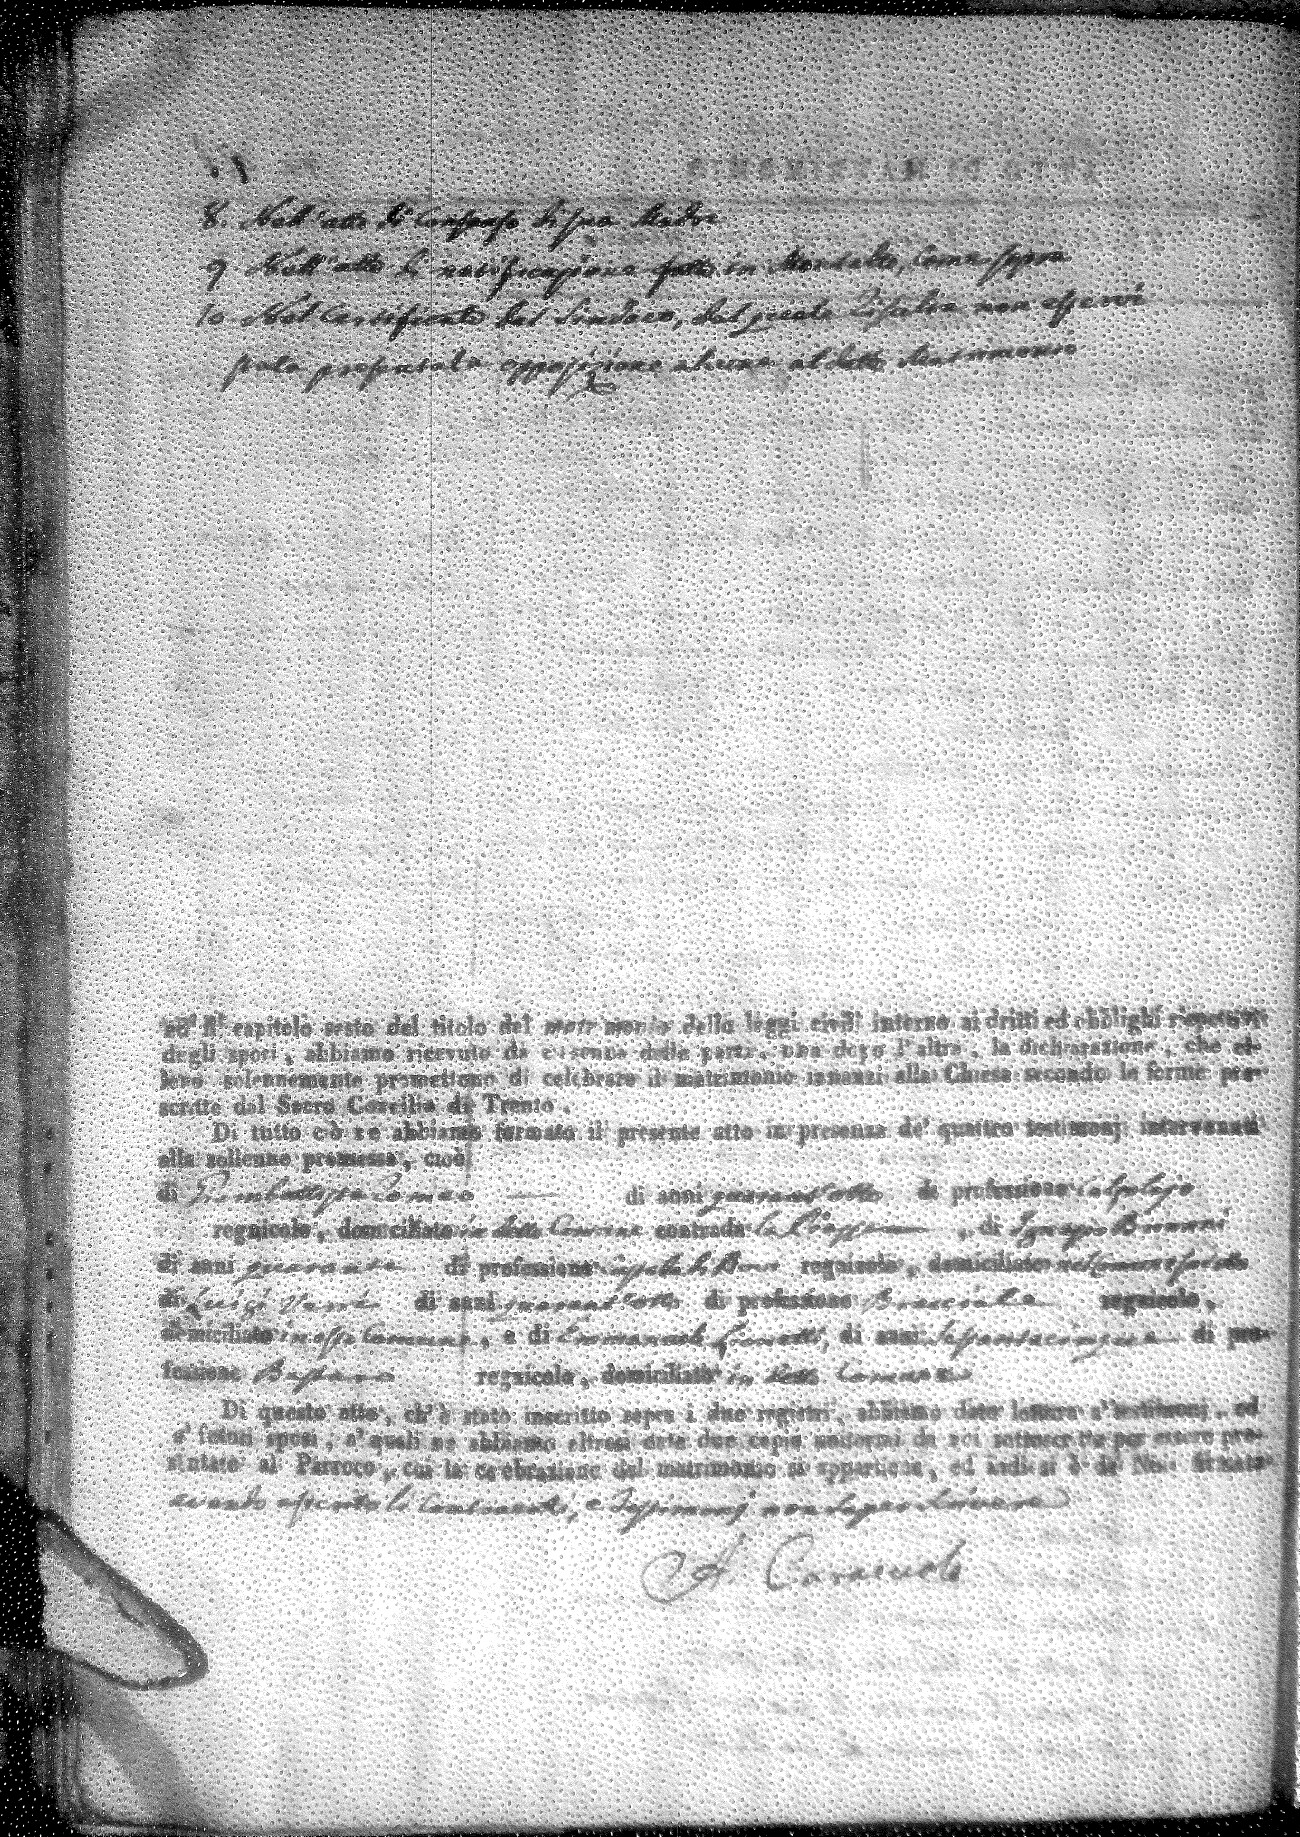 8. Nell'atto di Consenso di sua Madre
9 Nell'atto di notificazione fatto in Montalto, Come sopra
10 Nel Certificato del Sindaco, dal quale risulta non esservi
stata presentata opposizione alcuna al detto Matrimonio
del capitolo sesto del titolo del matrimonio delle leggi civili intorno ai dritti ed obblighi rispettivi
degli sposi, abbiamo ricevuto da ciascuna delle parti, una dopo l'altra, la dichiarazione, che el-
leno solennemente promettono di celebrare il matrimonio innanzi alla Chiesa secondo le forme pre-
scritte dal Sacro Concilio di Trento.
Di tutto ciò ne abbiamo formato il presente atto in presenza de' quattro testimonj intervenuti
alla sollenne promessa, cioè
di Giambattista di anni quarant'otto di professione
regnicolo, domiciliato in detto Comune contrada la, di Ignazio
di anni quaranta di professione regnicolo, domiciliato nel Comune suddetto
di Luigi di anni quarant'otto di professione Bracciale regnicolo,
domiciliato in esso Comune, e di Emmanuele, di anni sessantacinque di pro-
fessione regnicolo, domiciliato in detto Comune
Di questo atto, ch'è stato inscritto sopra i due registri, abbiamo dato lettura a' testimonj, ed
a' futuri sposi, a' quali ne abbiamo altresì date due copie uniformi da noi sottoscritte per essere pre-
sentate al Parroco, cui la celebrazione del matrimonio si appartiene, ed indi si è da Noi firmato
avendo asserito li Contraenti, e Testimonj non saper scrivere